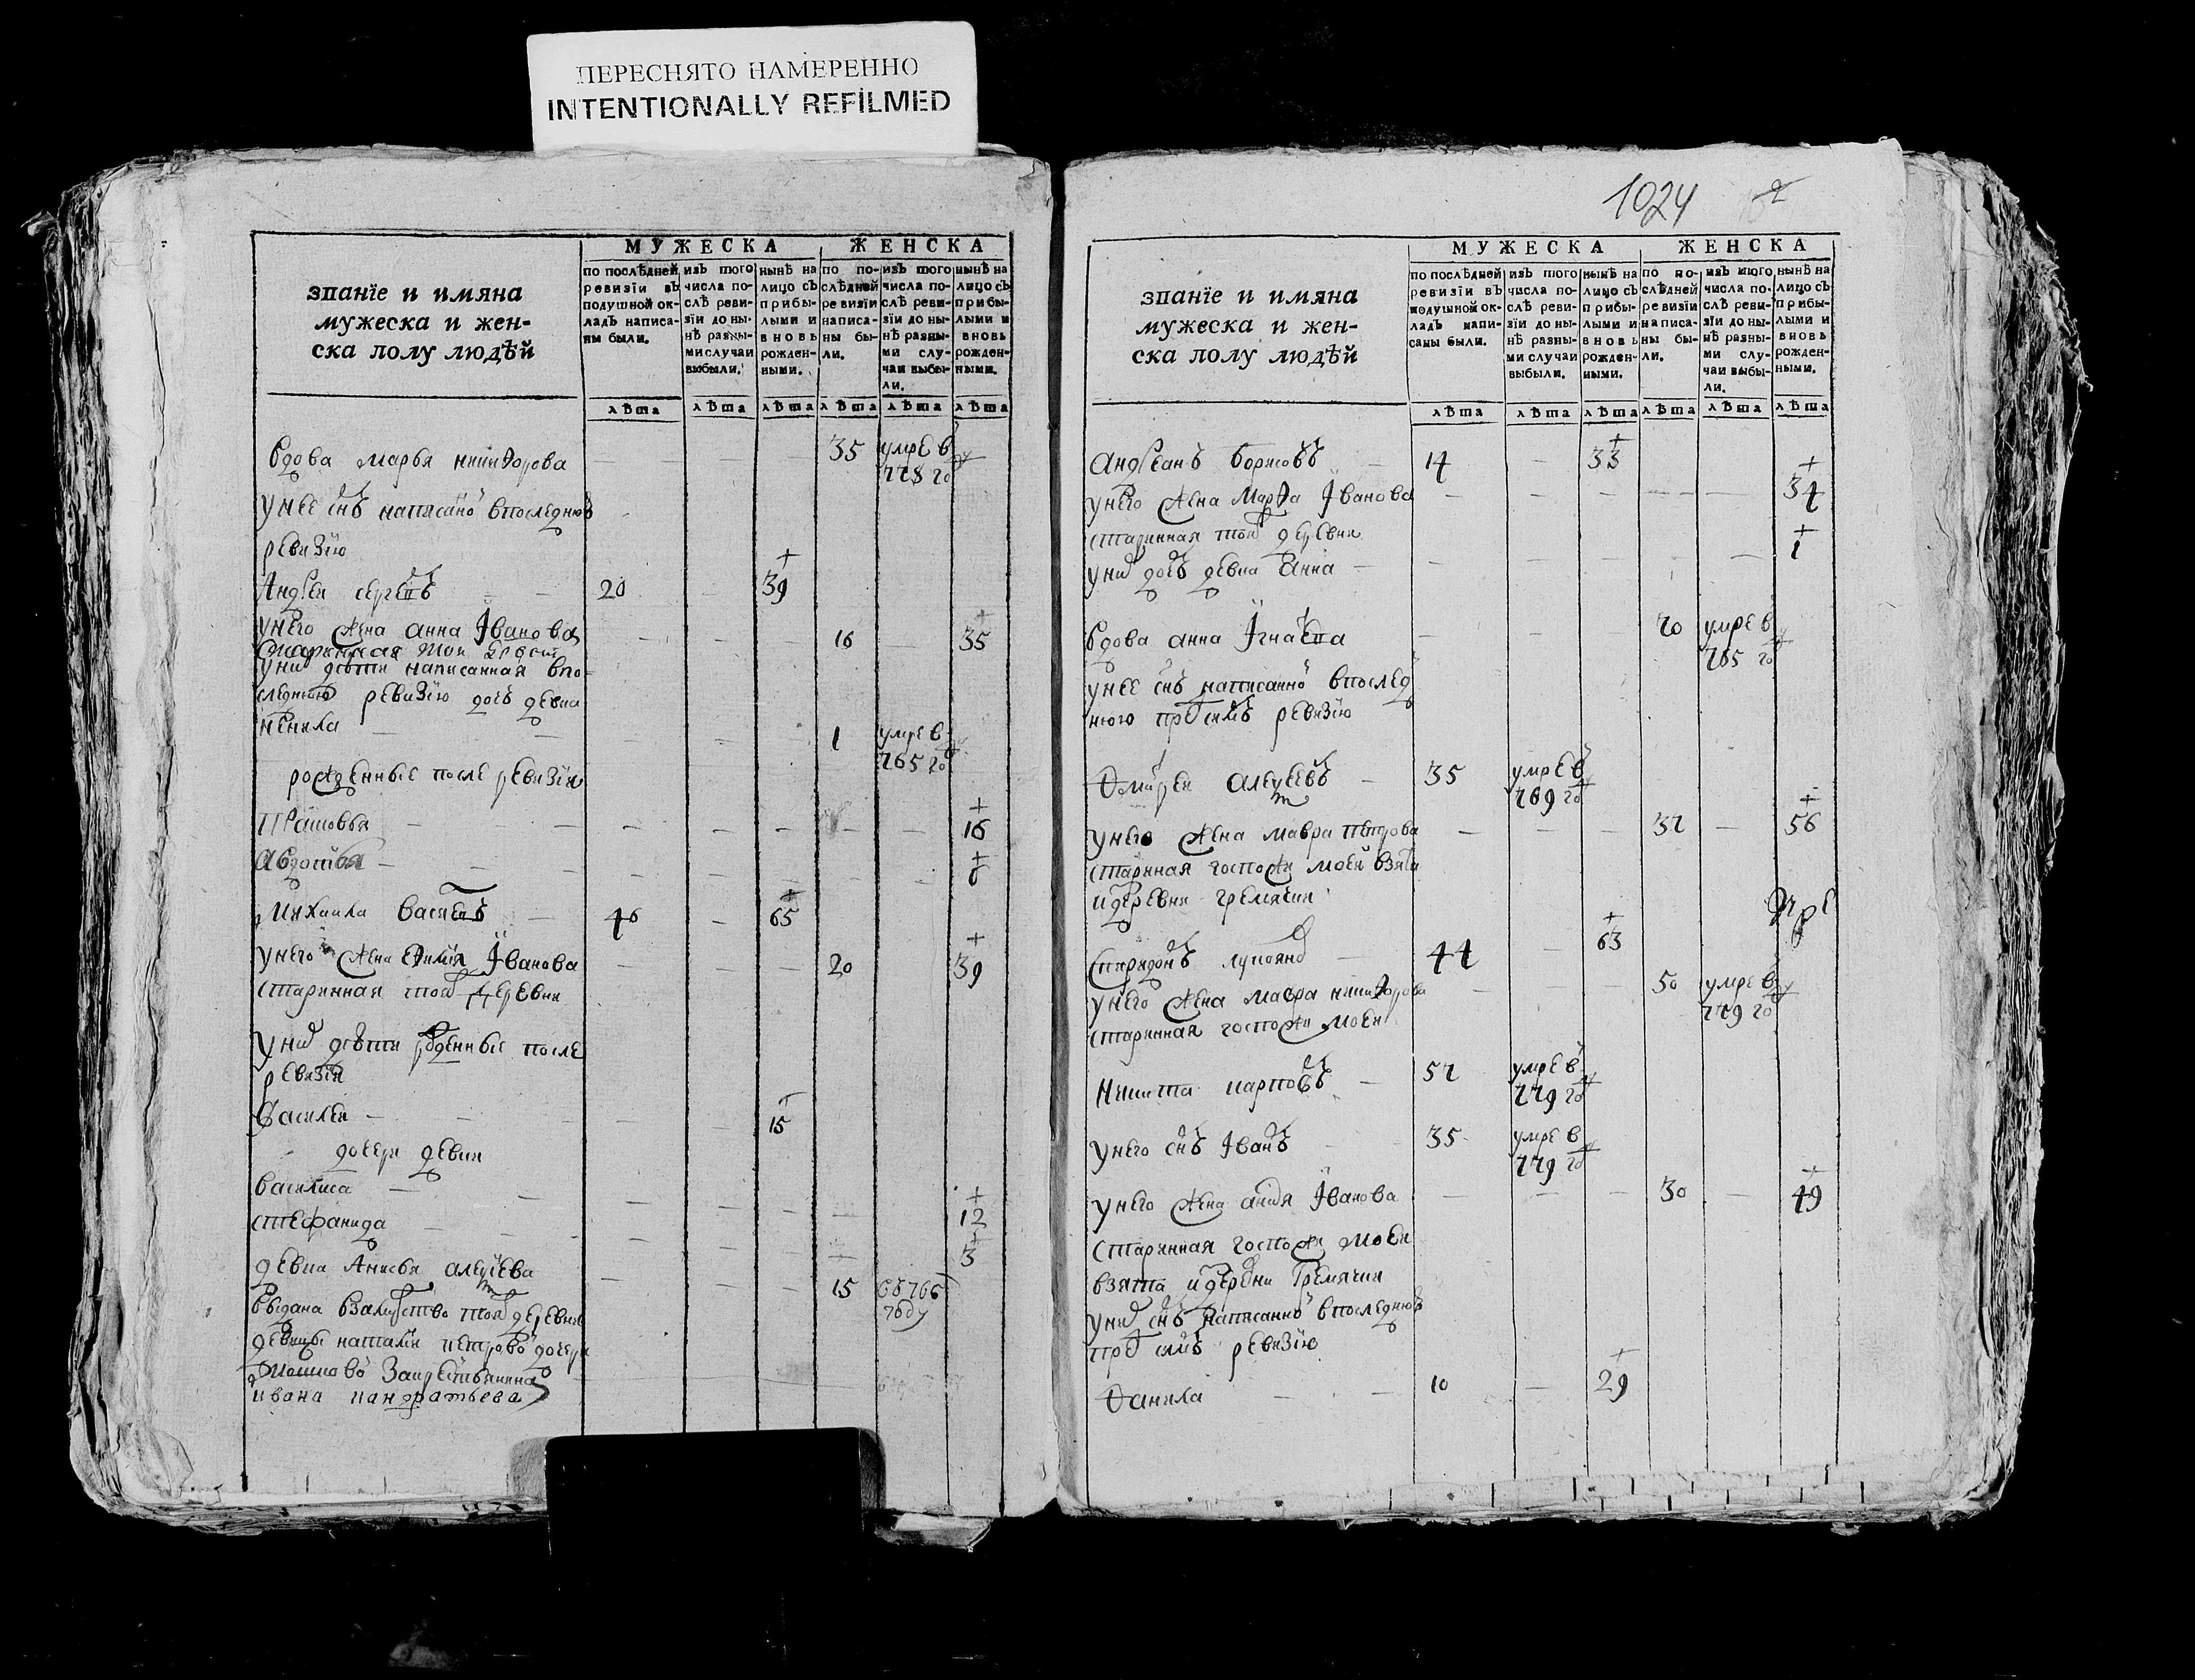 ПЕРЕСНЯТО НАМЕРЕННО
INTENTIONALLY REFILMED
МУЖЕСКА ЖЕНСКА
званїе и имяна
мужеска и жен-
ска полу людѣй
по послѣдней ревизїи въ подушной ок-ладъ написа-ны были.
изъ того числа по-слѣ реви-зїи до ны-нѣ разны-ми случаи выбыли.
нынѣ на лицо съ прибы-лыми и вновь рожден-ными.
по по-слѣдней ревизїи написа-ны бы-ли.
изъ того числа по-слѣ реви-зїи до ны-нѣ разны-ми слу-чаи выбы-ли.
нынѣ на лицо съ прибы-лыми и вновь рожден-ными.
лѣта лѣта лѣта лѣта лѣта лѣта
вдова марья никифорова 35 умре в 778 го
у нее снъ написано в последнюю
ревизїю
Андреи сергевъ 20 39
у него жена анна Ивановa 16 35
старинная тои
у ни дѣти написанная впо
следнюю ревизїю доч девка
ненила 1 умре в 765 го
рожденные после ревизїи
Прасковья 16
Авдотья 8
Михаила василевъ 46 65
у него жена ефимия Иванова 20 39
старинная тои деревни
у ни дѣти рожденные после
ревизїи
Василеи 15
дочери девки
василиса 12
стефанида 3
девка Анисья алексѣева 15 в 766 году
выдана в замужство тои деревни
девки наталии петровои дочери
за крестьянина
ивана кандратьева
1024
МУЖЕСКА ЖЕНСКА
званїе и имяна
мужеска и жен-
ска полу людѣй
по послѣдней ревизїи въ подушной ок-ладъ напи-саны были.
изъ того числа по-слѣ реви-зїи до ны-нѣ разны-ми случаи выбыли.
нынѣ на лицо съ прибы-лыми и вновь рожден-ными.
по по-слѣдней ревизїи написа-ны бы-ли.
изъ того числа по-слѣ реви-зїи до ны-нѣ разны-ми слу-чаи выбы-ли.
нынѣ на лицо съ прибы-лыми и вновь рожден-ными.
лѣта лѣта лѣта лѣта лѣта лѣта
андреанъ борисовъ 14 33
у него жена марфа Иванова 34
старинная тои деревни
у ни доч девка анна 1
вдова анна Игнатева 70 умре в 765 го
у нее снъ написанно в послед
нюю ревизїю
дмитреи алексѣевъ 35 умре в 769 го
у него жена мавра петрова 37 56
старинная госпожи моеи взята
из деревни гремячки
спиридонъ лукоянов 44 63
у него жена мавра никифорова 50 умре в 779 го
старинная госпожи моеи
Никита карповъ 57 умре в 779 го
у него снъ Иванъ 35 умре в 779 го
у него жена Иванова 30 49
старинная госпожи моеи
взята из деревни гремячки
у ни снъ написанно в последнюю
ревизїю
данила 10 29